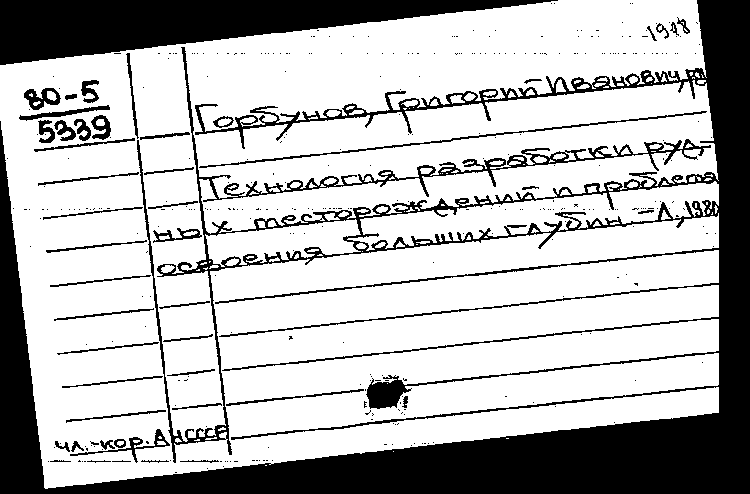 1918
80-5
5339
Горбунов, Григорий Иванович, ред.
Технология разработки руд-
ных месторождений и проблема
освоения больших глубин. - Л., 1980
чл.-кор. АН СССР